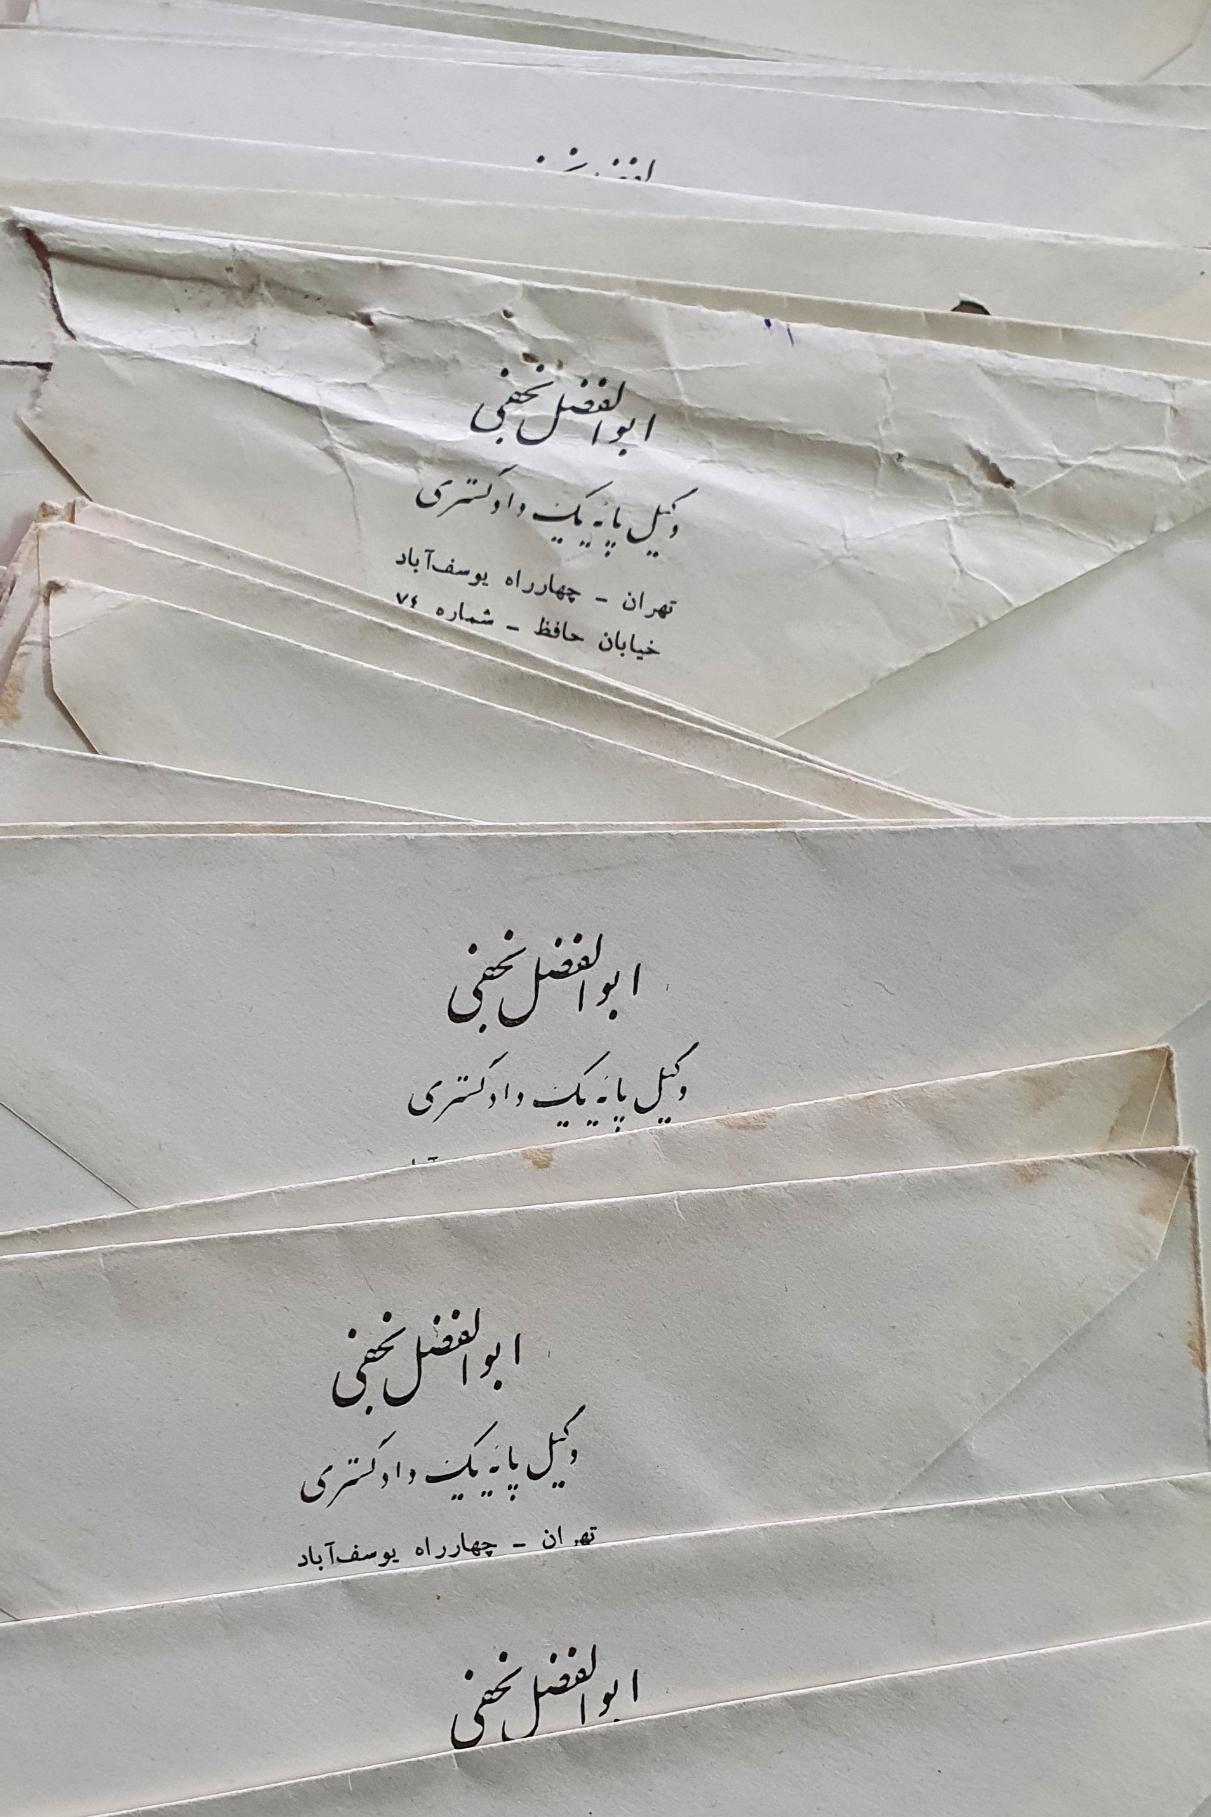 ابوالفضل نجفی
وکیل پایه یک دادگستری
تهران - چهارراه یوسف‌آباد
خیابان حافظ - شماره ۷٤
ابوالفضل نجفی
وکیل پایه یک دادگستری
ابوالفضل نجفی
وکیل پایه یک دادگستری
تهران - چهارراه یوسف‌آباد
ابوالفضل نجفی